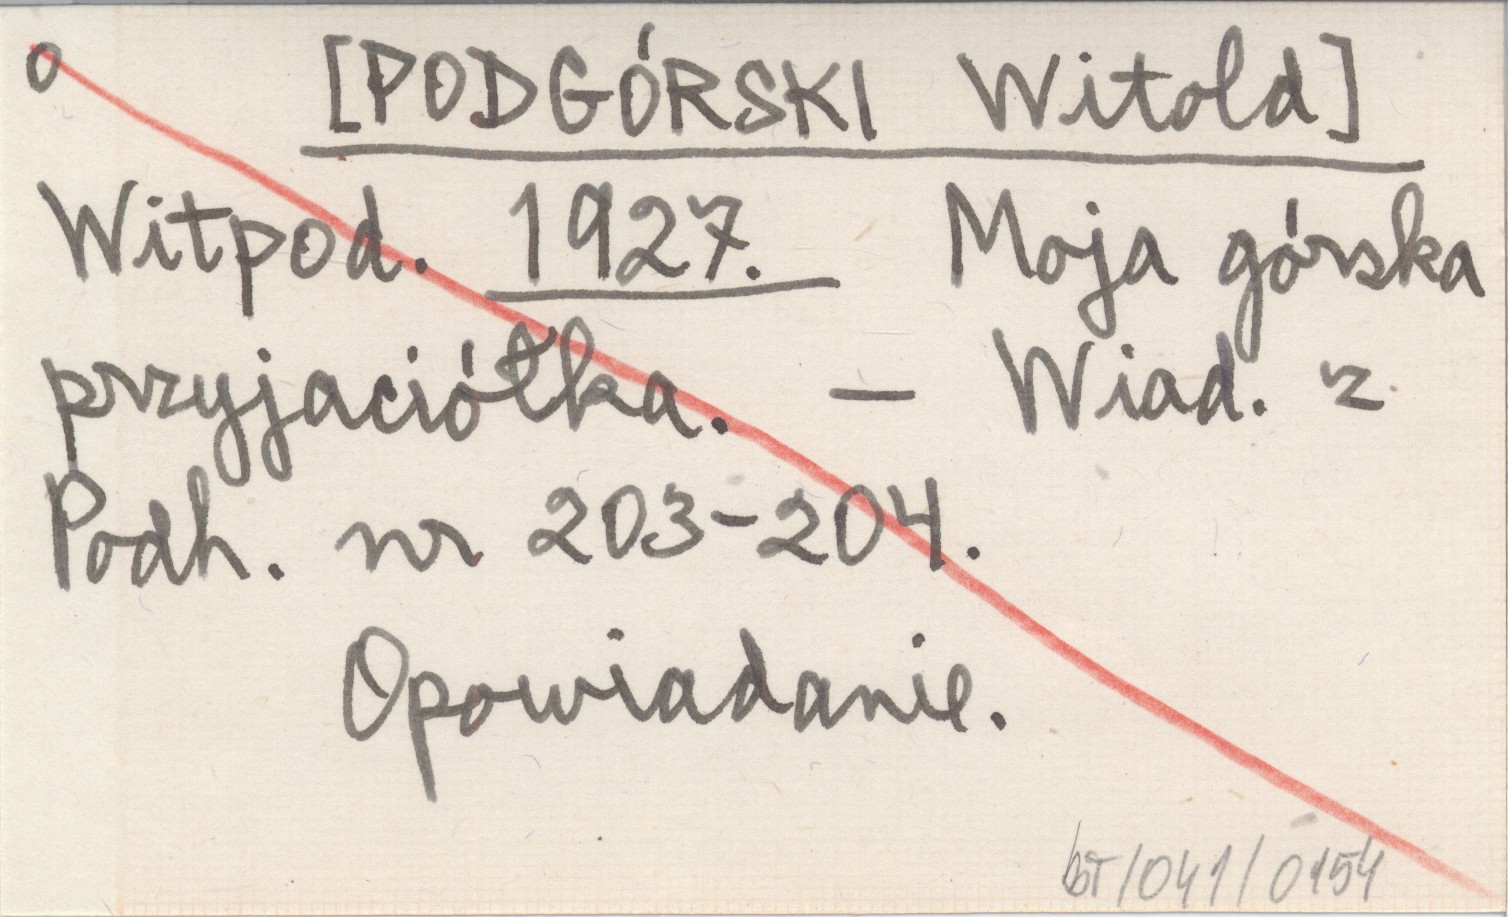 o [PODGÓRSKI Witold]
Witpod. 1927. Moja górska
przyjaciółka. — Wiad. z
Podh. nr 203-204.
Opowiadanie.
bT/041/0154